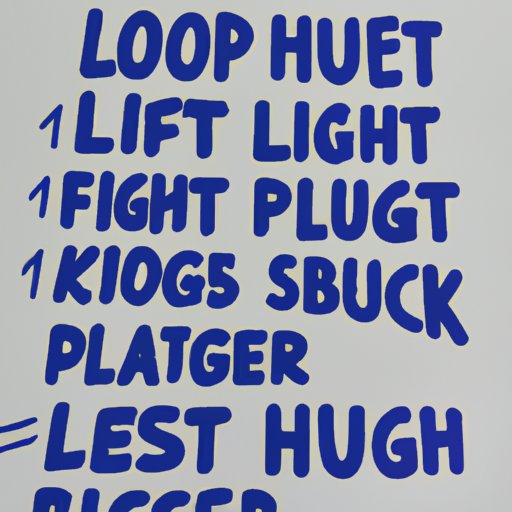 LOOP HUET
1 LIFT LIGHT
1 FIGHT PLUGT
1 KIOGS SBUCK
PLATGER
= LEST HUGH